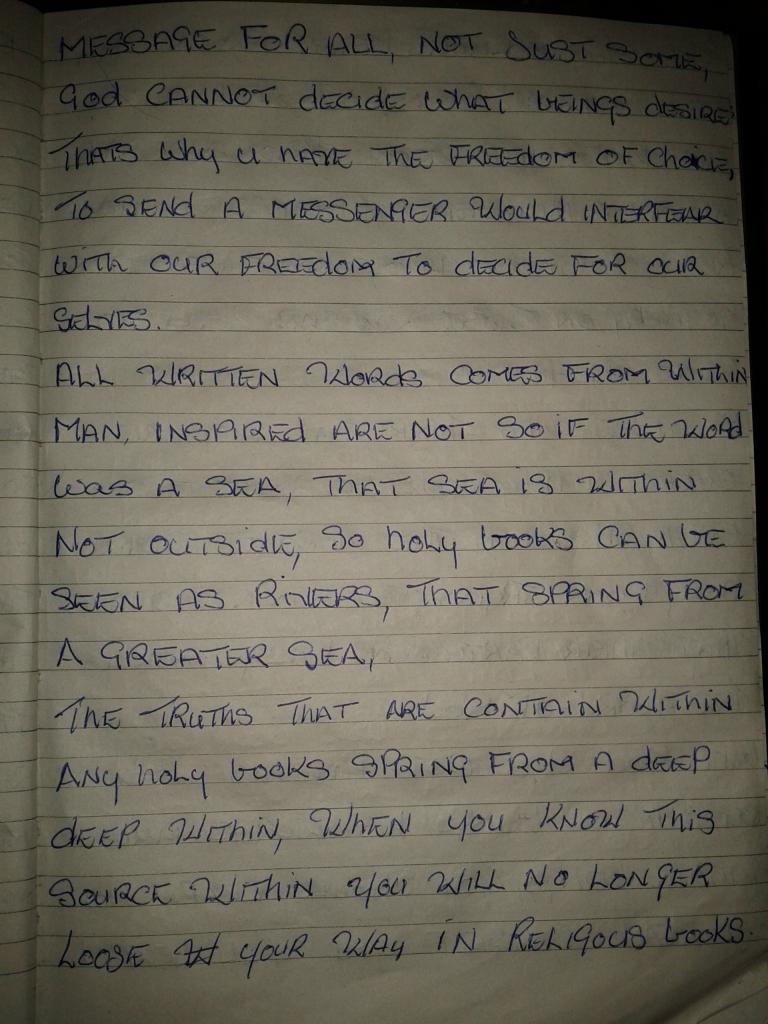 MESSAGE FOR ALL, NOT JUST SOME,
God CANNOT decide what beings desire
Thats why u have the freedom of choice,
To send a messenger would interfear
with our freedom to decide for our
selves.
All written words comes from within
man, inspired are not so if the word
was a sea, that sea is within
not outside, so holy books can be
seen as rivers, that spring from
a greater sea,
The truths that are contain within
any holy books spring from a deep
deep within, when you know this
source within you will no longer
loose your way in religous books.